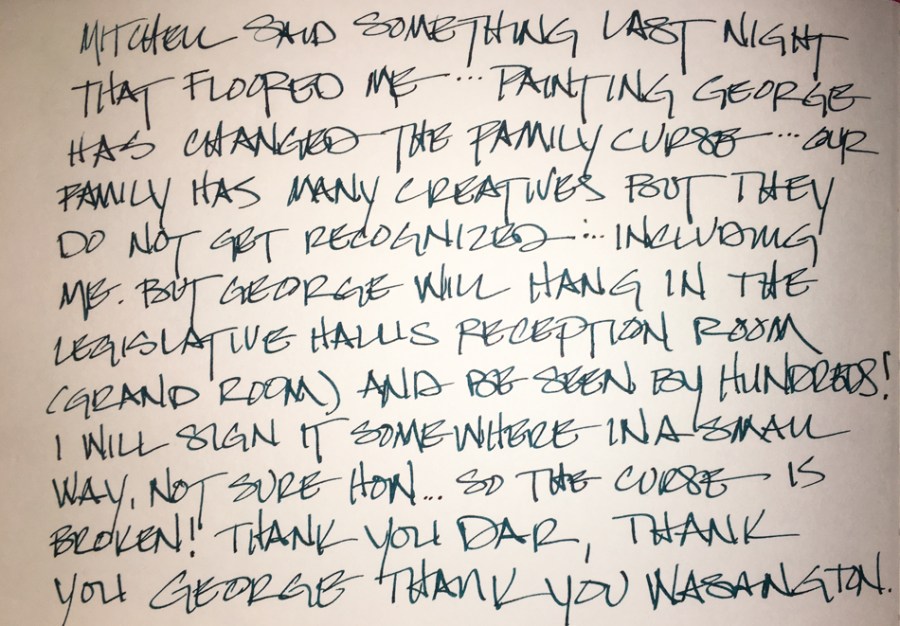 MITCHELL SAID SOMETHING LAST NIGHT
THAT FLOORED ME ... PAINTING GEORGE
HAS CHANGED THE FAMILY CURSE ... OUR
FAMILY HAS MANY CREATIVES BUT THEY
DO NOT GET RECOGNIZED ... INCLUDING
ME. BUT GEORGE WILL HANG IN THE
LEGISLATIVE HALLS RECEPTION ROOM
(GRAND ROOM) AND BE SEEN BY HUNDREDS!
I WILL SIGN IT SOMEWHERE IN A SMALL
WAY, NOT SURE HOW... SO THE CURSE IS
BROKEN! THANK YOU DAR, THANK
YOU GEORGE THANK YOU WASANGTON.